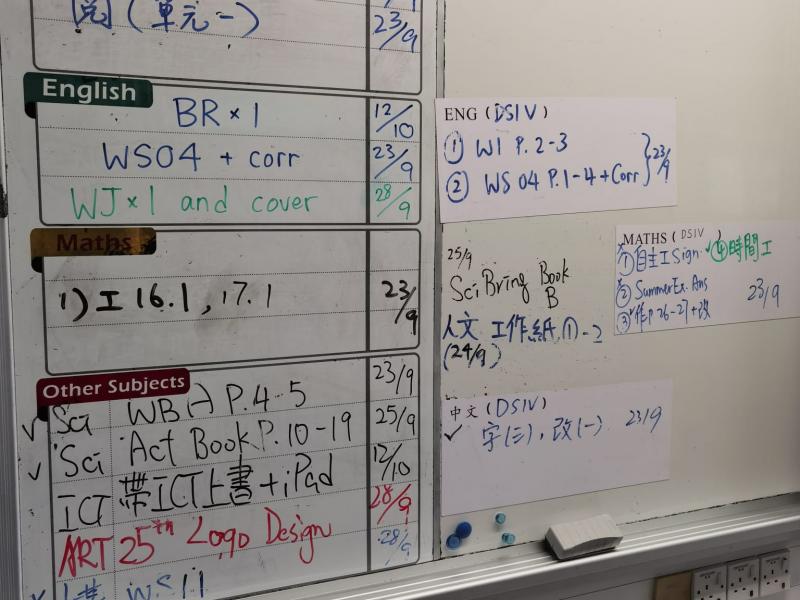 閱(單元一) 23/9
English
BR×1 12/10
WS04 + corr 23/9
WJ×1 and cover 28/9
Maths
1) 工16.1, 17.1 23/9
Other Subjects
✓ Sci WB(一) P.4-5 23/9
✓ Sci Act Book P.10-19 25/9
ICT 帶ICT上書+iPad 12/10
ART 25th Logo Design 28/9
WS 1.1 28/9
ENG (DSIV)
① W1 P.2-3
② WS 04 P.1-4 + Corr } 23/9
25/9
Sci Bring Book B
人文 工作紙①-2
(24/9)
MATHS (DSIV)
①自主工Sign ✓④時間工
② Summer Ex. Ans
③作P.26-27+改 23/9
中文 (DSIV)
✓ 字(三), 改(一) 23/9